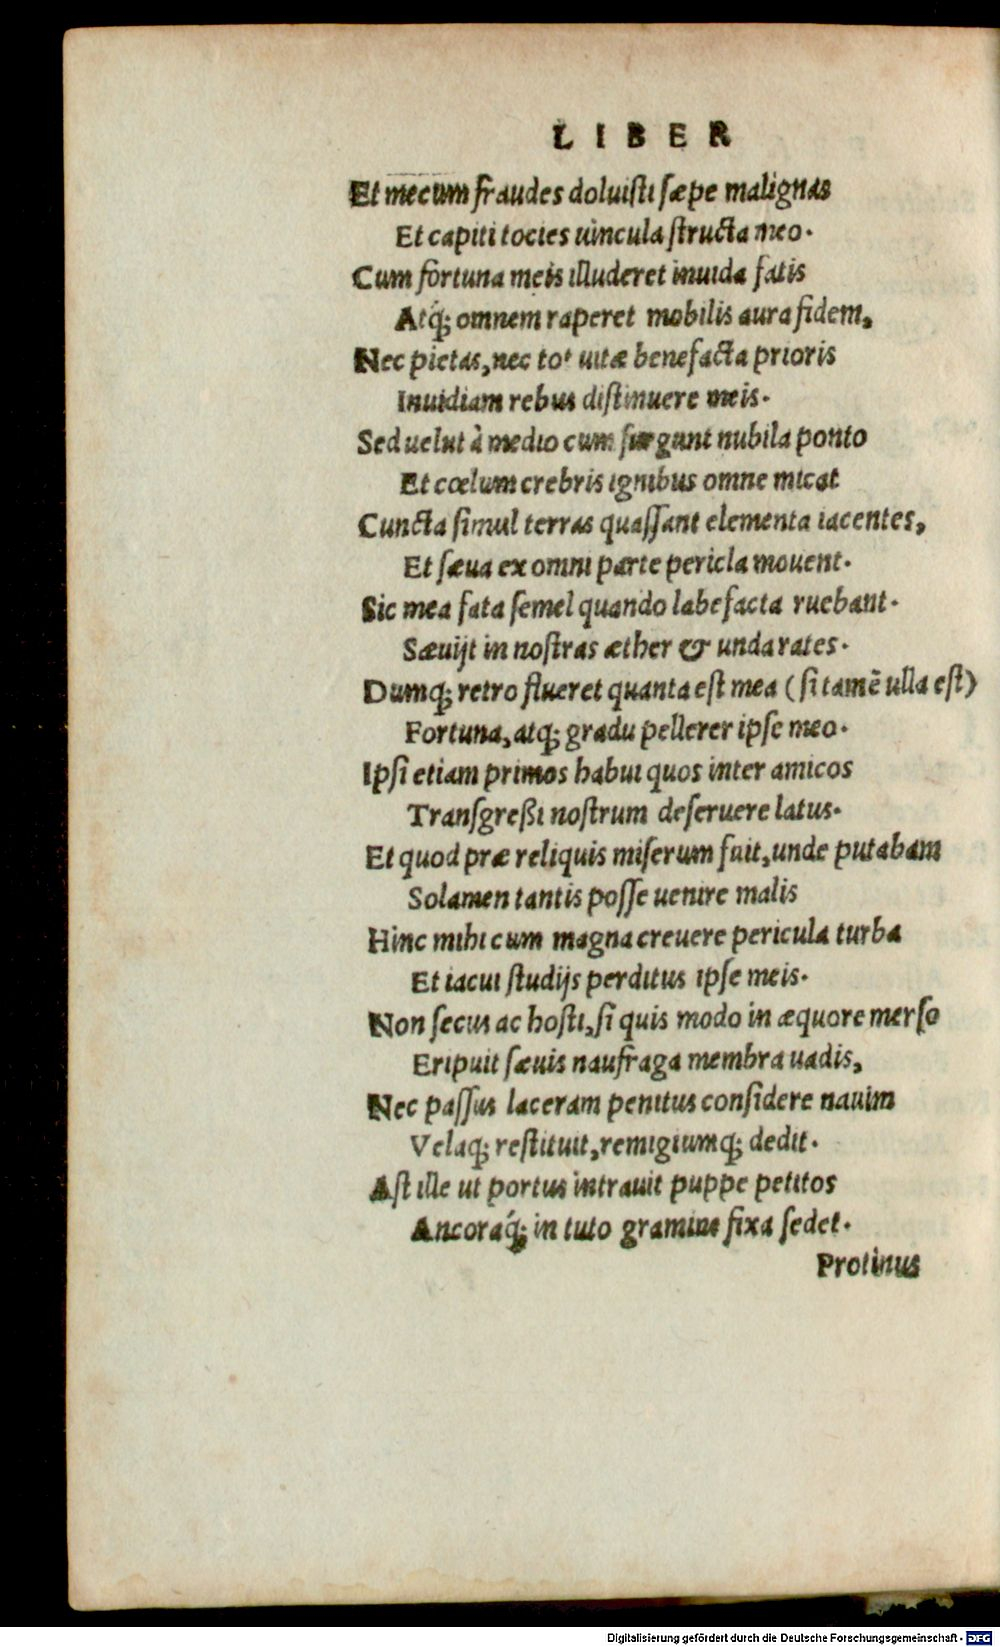 LIBER
Et mecum fraudes doluisti sæpe malignas
Et capiti tocies uincula structa meo.
Cum fortuna meis illuderet inuida fatis
Atq́; omnem raperet mobilis aura fidem,
Nec pietas, nec tot uitæ benefacta prioris
Inuidiam rebus distinuere meis.
Sed uelut à medio cum surgunt nubila ponto
Et cœlum crebris ignibus omne micat
Cuncta simul terras quassant elementa iacentes,
Et sæua ex omni parte pericla mouent.
Sic mea fata semel quando labefacta ruebant.
Sæuijt in nostras æther & unda rates.
Dumq; retro flueret quanta est mea (si tamē ulla est)
Fortuna, atq; gradu pellerer ipse meo.
Ipsi etiam primos habui quos inter amicos
Transgreßi nostrum deseruere latus.
Et quod præ reliquis miserum fuit, unde putabam
Solamen tantis posse uenire malis
Hinc mihi cum magna creuere pericula turba
Et iacui studijs perditus ipse meis.
Non secus ac hosti, si quis modo in æquore merso
Eripuit sæuis naufraga membra uadis,
Nec passus laceram penitus considere nauim
Velaq; restituit, remigiumq; dedit.
Ast ille ut portus intrauit puppe petitos
Ancoraq́; in tuto gramine fixa sedet.
Protinus
Digitalisierung gefördert durch die Deutsche Forschungsgemeinschaft - DFG